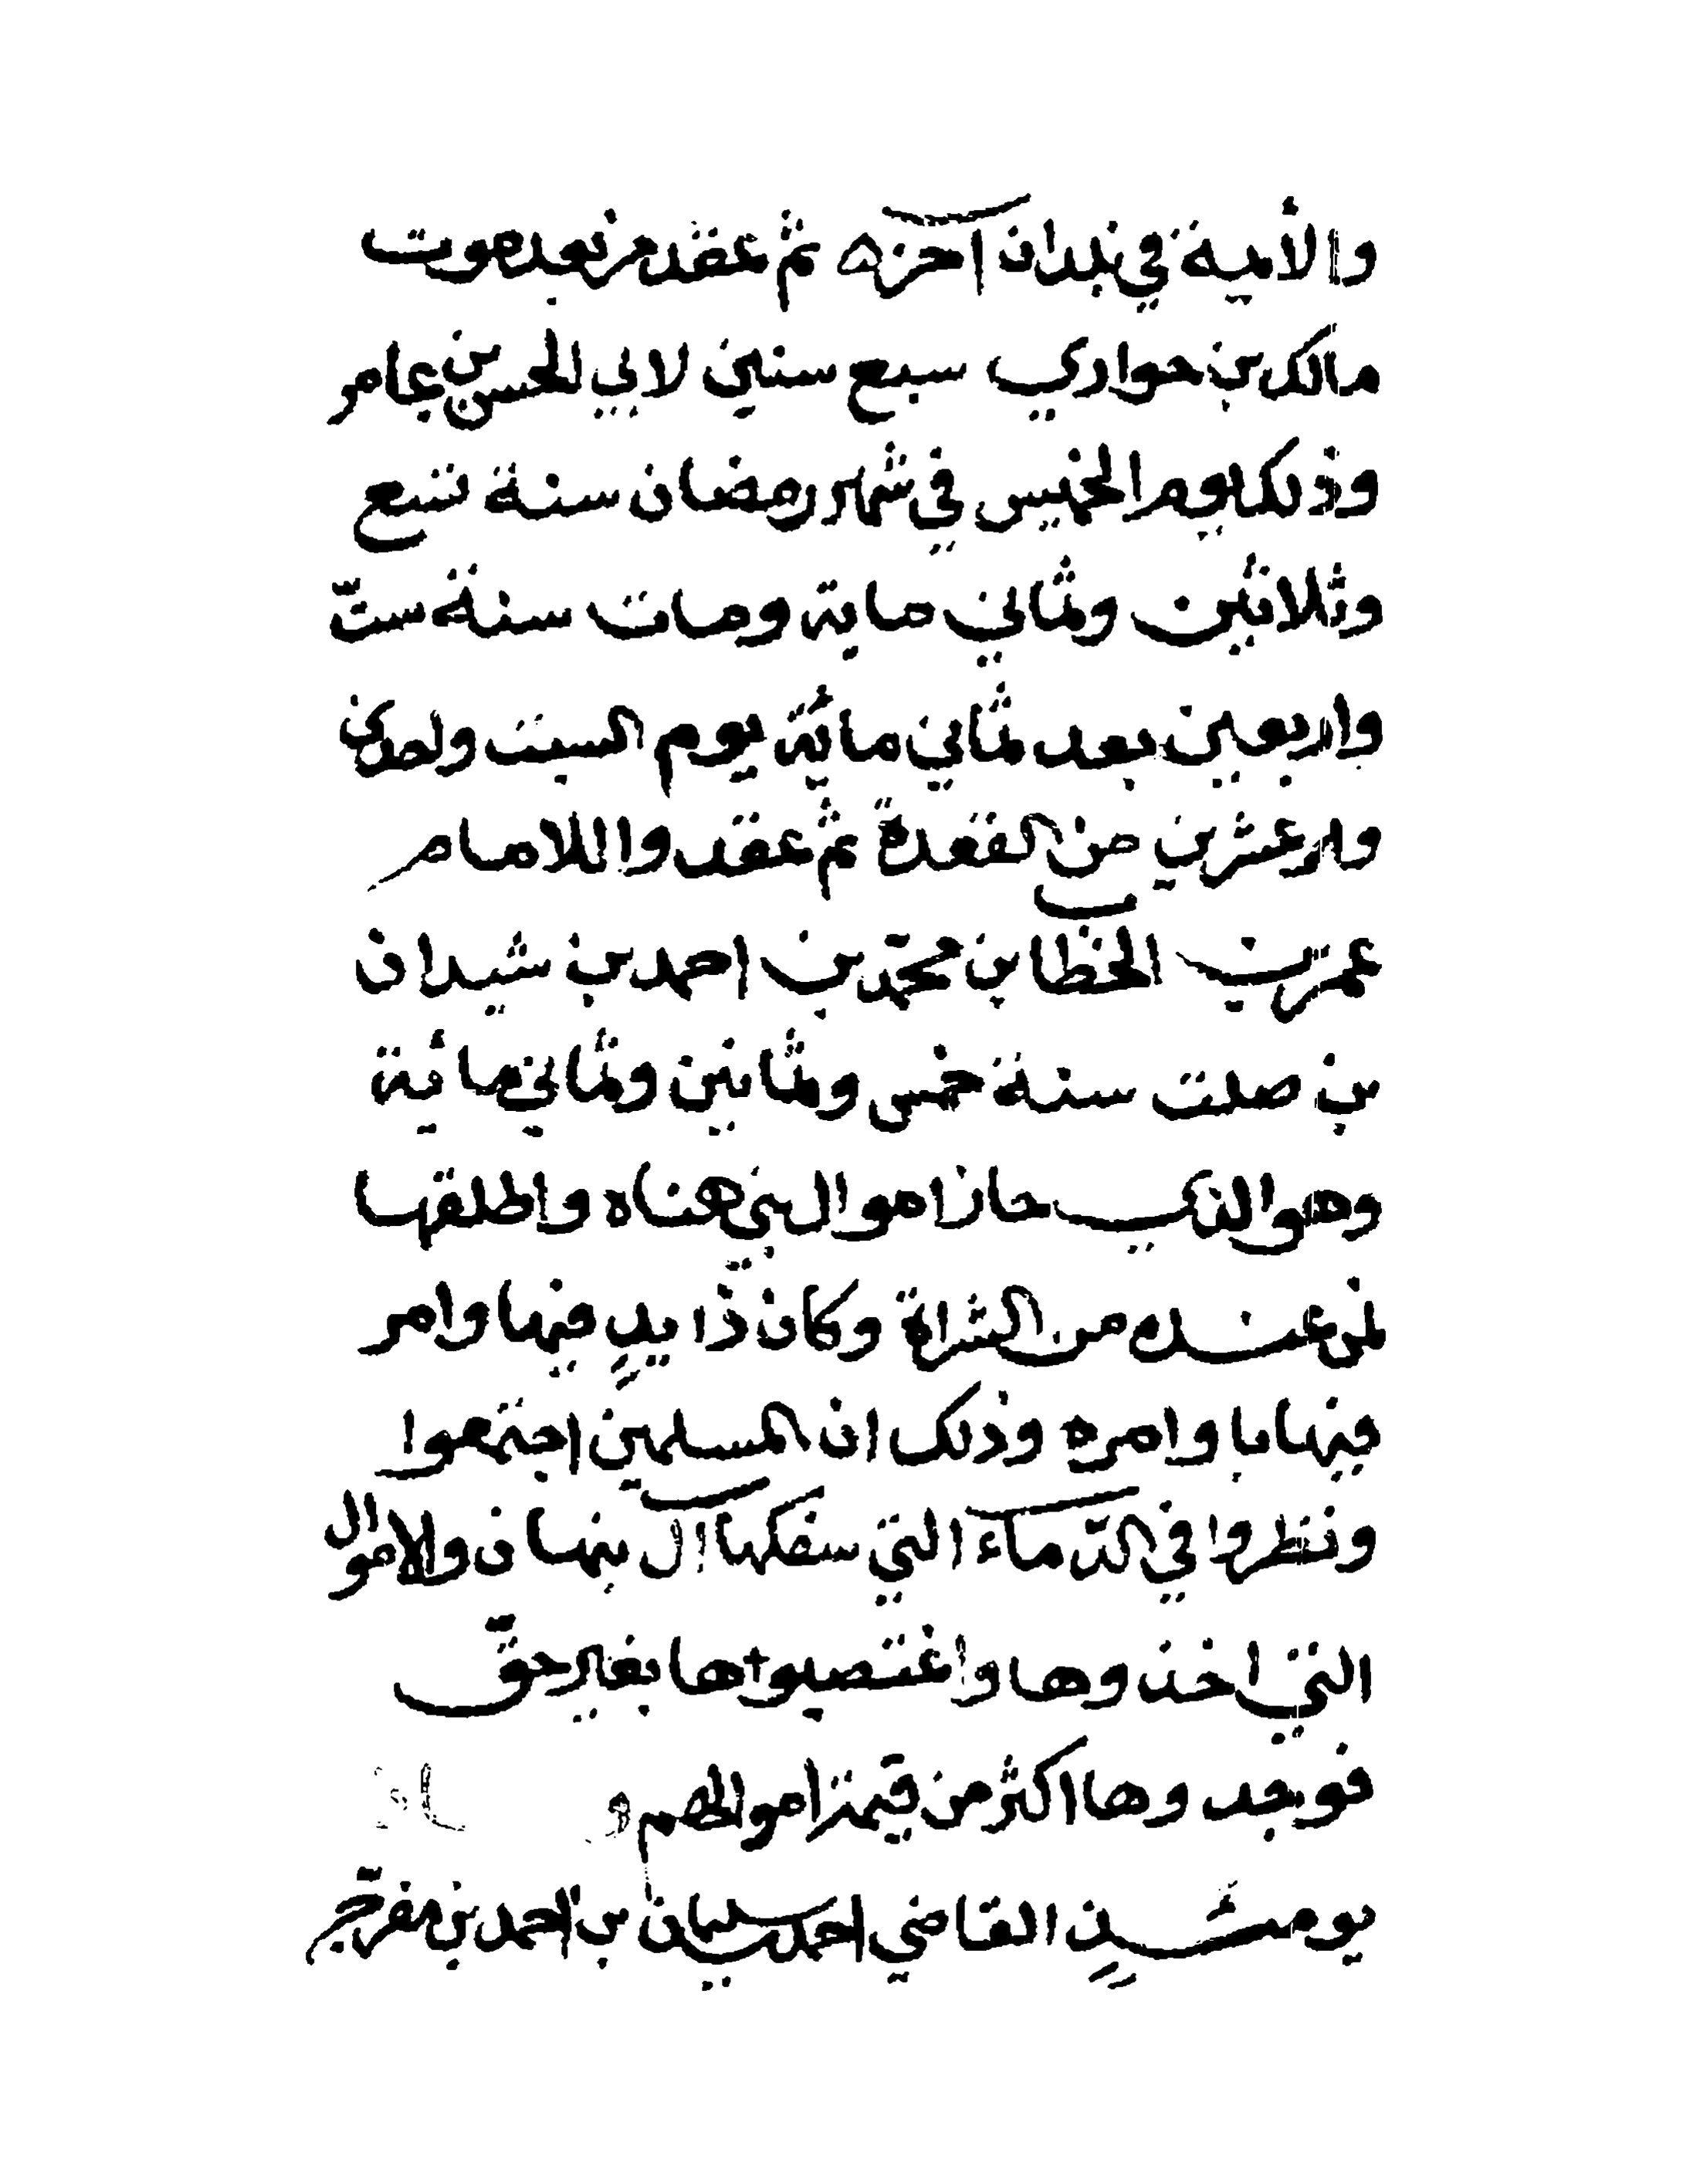 والأئمة في بلدان آخره ثم عقد من بعد موت
مالك بن حواري سبع سنين لابي الحسن بن عامر
وذلك يوم الخميس في شهر رمضان سنة تسع
وثلاثين وثماني ماية ومات سنة ستّ
واربعين بعد ثماني مائة يوم السبت واحدى
وعشرين من القعدة ثم عقدوا للامام
عمر بن الخطاب بن محمّد بن احمد بن شيدان
بن صلت سنة خمس وثمانين وثماني مائية
وهو الذي حاز اموال بني هناه واطلقها
لمن عنده من الشراة وكان ذا يدٍ فيها وامر
فيها باوامره وذلك ان المسلمين اجتمعوا
ونظروا في الدّماء التي سفكها آل بنهان والاموال
التي اخذوها واغتصبوا ها بغير حقّ
فوجدوها اكثر من قيمة اموالهم و
يومئذٍ القاضي احمد سليمان بن احمد بن مفرّج